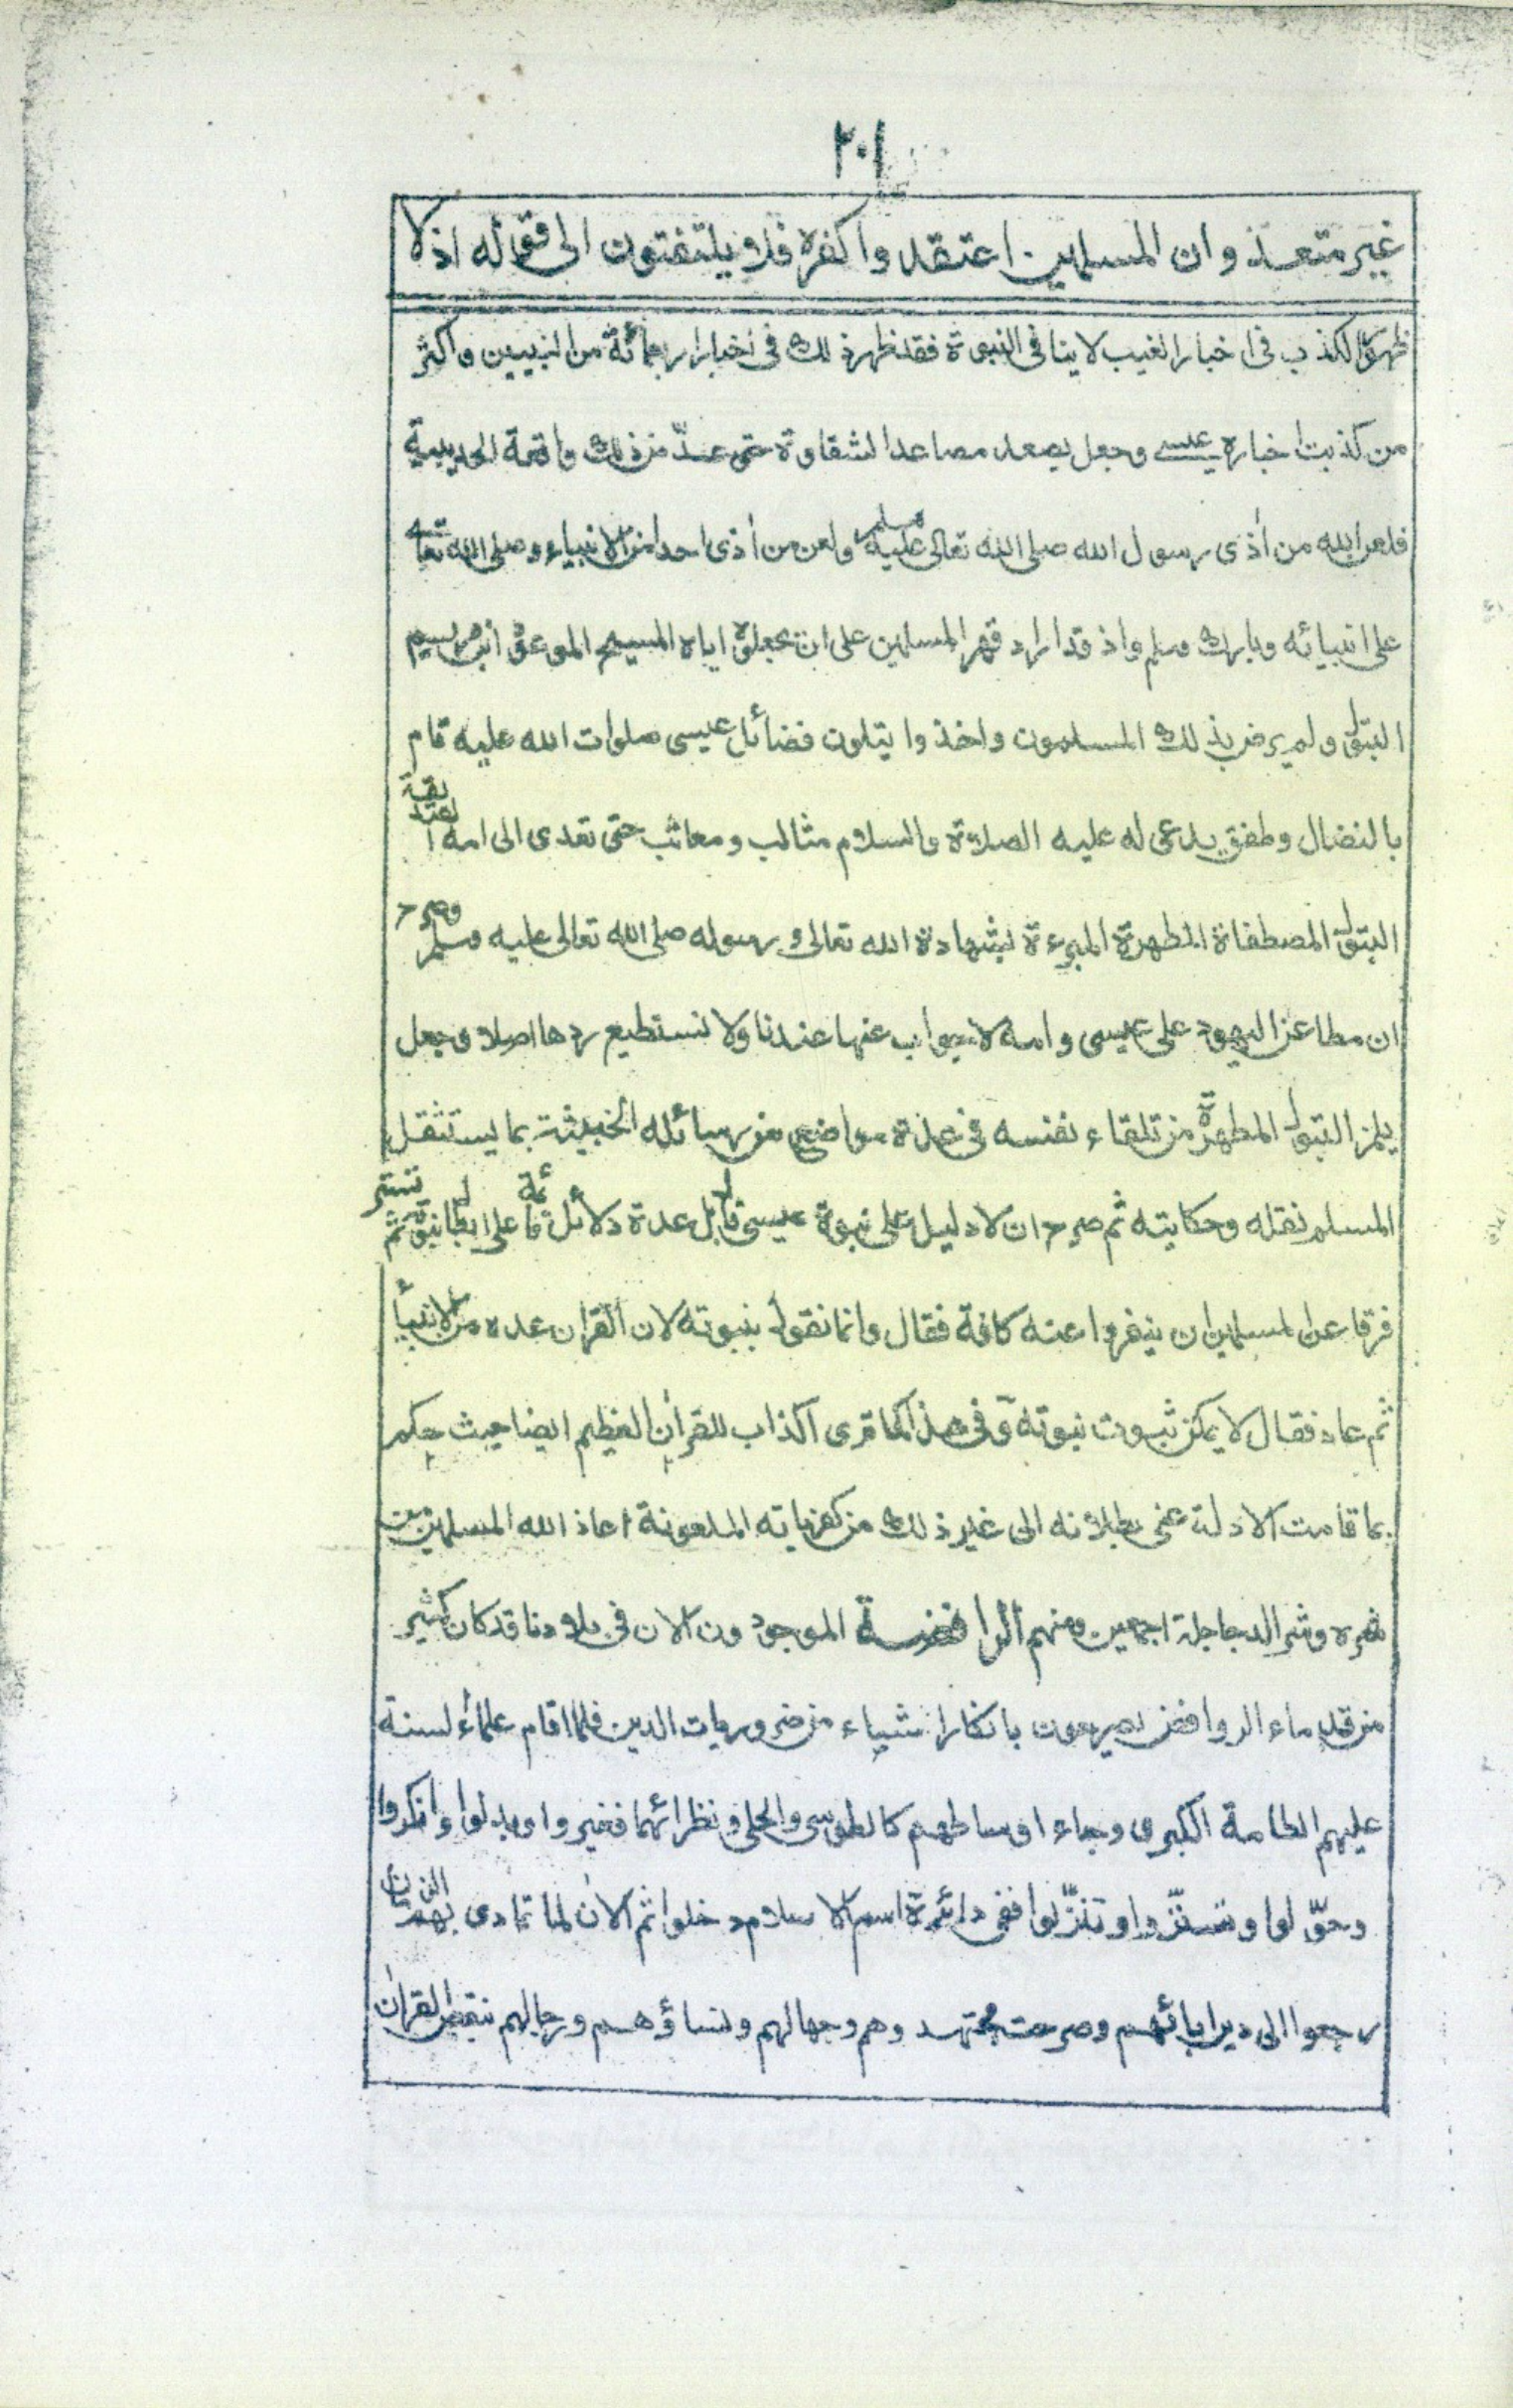 ٢٠١
غير متعذ وان المسلمين اعتقدوا كفره فلا يلتفتون الى قوله اذ لا
ظهور الكذب فى اخبار الغيب لا ينافى النبوة فقد ظهر ذلك فى اخبار اربعمائة من النبيين واكثر
من كذبت اخباره عيسى وجعل يصعد مصاعد الشقاوة حتى عدّ من ذلك واقعة الحديبية
فلعن الله من أذى رسول الله صلى الله تعالى عليه وسلم ولعن من أذى احدا من الانبياء وصلى الله تعالى
على انبيائه وبارك وسلم واذ قد اراد قهر المسلمين على ان يجعلوه اياه المسيح الموعود ابن مريم
البتول ولم يرض بذلك المسلمون واخذوا يتلون فضائل عيسى صلوات الله عليه قام
بالنضال وطفق يدعى له عليه الصلاة والسلام مثالب ومعائب حتى تعدى الى امه الصديقة
البتول المصطفاة المطهرة المبرءة بشهادة الله تعالى ورسوله صلى الله تعالى عليه وسلم وصرح
ان مطاعن اليهود على عيسى وامه لا جواب عنها عندنا ولا نستطيع ردها اصلا وجعل
يلمز البتول المطهرة من تلقاء نفسه فى عدة مواضع من رسائله الخبيثة بما يستثقل
المسلم نقله وحكايته ثم صرح ان لا دليل على نبوة عيسى قال بل عدة دلائل قائمة على ابطال نبوته ثم تستر
فرقا عن المسلمين ان ينفروا عنه كافة فقال وانما نقول بنبوته لان القران عده من الانبيأ
ثم عاد فقال لا يمكن ثبوت نبوته وفى هذا كما ترى اكذاب للقرآن العظيم ايضا حيث حكم
بما قامت الادلة على بطلانه الى غير ذلك من كفرياته الملعونة اعاذ الله المسلمين من
شره وشر الدجاجلة اجمعين ومنهم الرافضة الموجودون الان فى بلادنا قد كان كثير
من قدماء الروافض يصرحون بانكار اشياء من ضروريات الدين فلما اقام علماء السنة
عليهم الطامة الكبرى وجاء اوساطهم كالطوسى والحلى ونظرائهما فغيروا وبدلوا وانكروا
وحوّلوا وتستّروا وتنزّلوا ففى دائرة اسم الاسلام دخلوا ثم الان لما تمادى بهم الزمان
رجعوا الى دير ابائهم وصرحت مجتهدوهم وجهالهم ونساؤهم ورجالهم بنقص القران